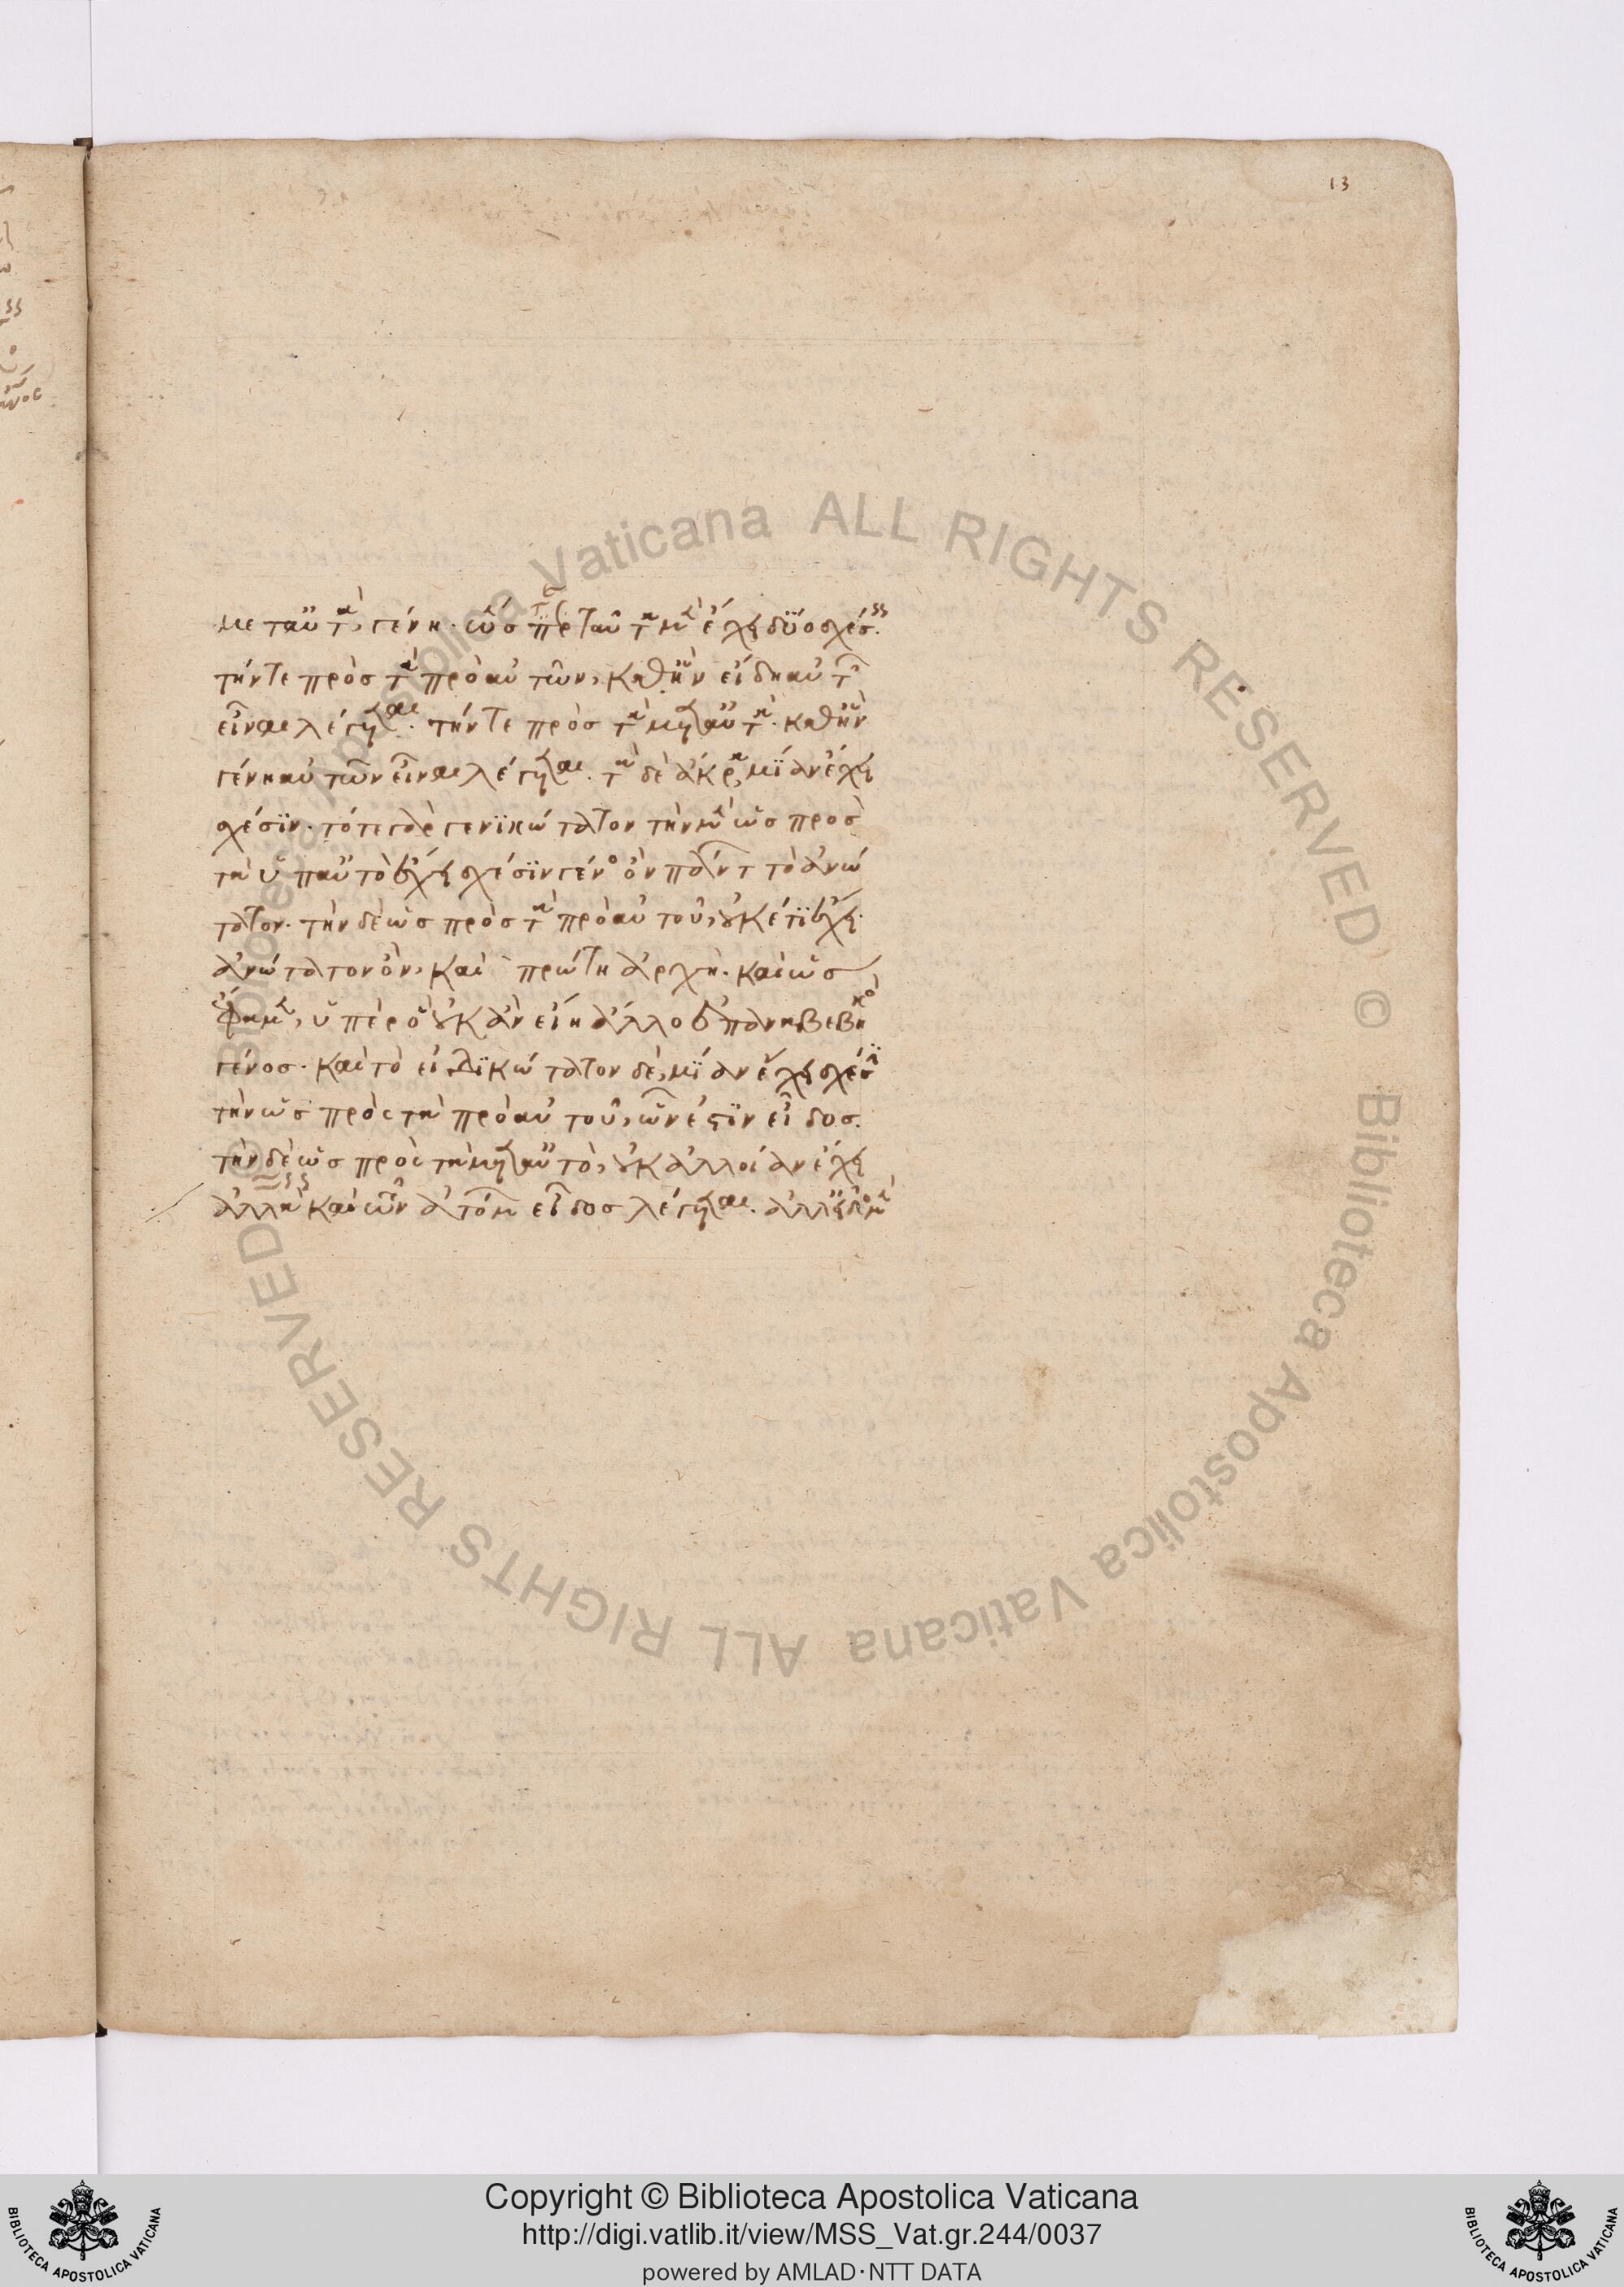 μεταὐτὰ, γένη. ὥσπερ ταῦτα μὲν ἔχει δύο σχέσεις.
τήν τε πρὸς τὰ πρὸ αὐτῶν, καθ ἣν εἴδη αὐτῶν
εἶναι λέγεται. τήν τε πρὸς τὰ μεταὐτά. καθ ἣν
γένη αὐτῶν εἶναι λέγεται. τὰ δὲ ἄκρα, μΐαν ἔχει
σχέσϊν. τό τε γὰρ γενϊκώτατον τὴν μὲν ὡς προς
τὰ ὑπαὐτὸ ἔχει σχέσϊν γένος ὂν πάντων τὸ ἀνώ
τατον. τὴν δὲ ὡς πρὸς τὰ πρὸ αὐτοῦ, οὐκέτϊ ἔχει.
ἀνώτατον ὂν, καὶ πρώτη ἀρχὴ. καὶ ὡς
ἔφαμεν, ὑπὲρ ὃ οὐκ ἂν εἴη ἄλλο ἐπαναβεβηκὸς
γένος. καὶ τὸ εἰδϊκώτατον δὲ, μίαν ἔχει σχέσϊν
τὴν ὡς πρὸς τὰ πρὸ αὐτοῦ, ὧν ἐστϊν εἶδος.
τὴν δὲ ὡς πρὸς τὰ μεταὐτὸ, οὐκ ἀλλοίαν ἔχει
ἀλλὰ καὶ τῶν ἀτόμων εἶδος λέγεται.
13
Copyright © Biblioteca Apostolica Vaticana
http://digi.vatlib.it/view/MSS_Vat.gr.244/0037
powered by AMLAD·NTT DATA
BIBLIOTECA APOSTOLICA VATICANA
BIBLIOTECA APOSTOLICA VATICANA
© Biblioteca Apostolica Vaticana ALL RIGHTS RESERVED
© Biblioteca Apostolica Vaticana ALL RIGHTS RESERVED